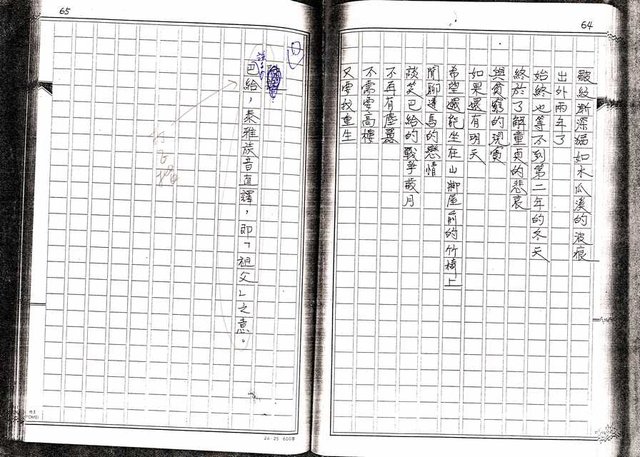 64
皺紋漸深猶如水瓜溪的波痕
出外兩年了
始終也等不到第二年的冬天
終於了解童貞的悲哀
與貧窮的現實
如果還有明天
希望還能坐在山腳屋前的竹椅上
閒聊達鳥的戀情
談笑巴給的戰爭歲月
不再有塵囂
不需要高樓
又要投重生
65
巴給,泰雅族音直譯,即「祖父」之意。
24×25 600字